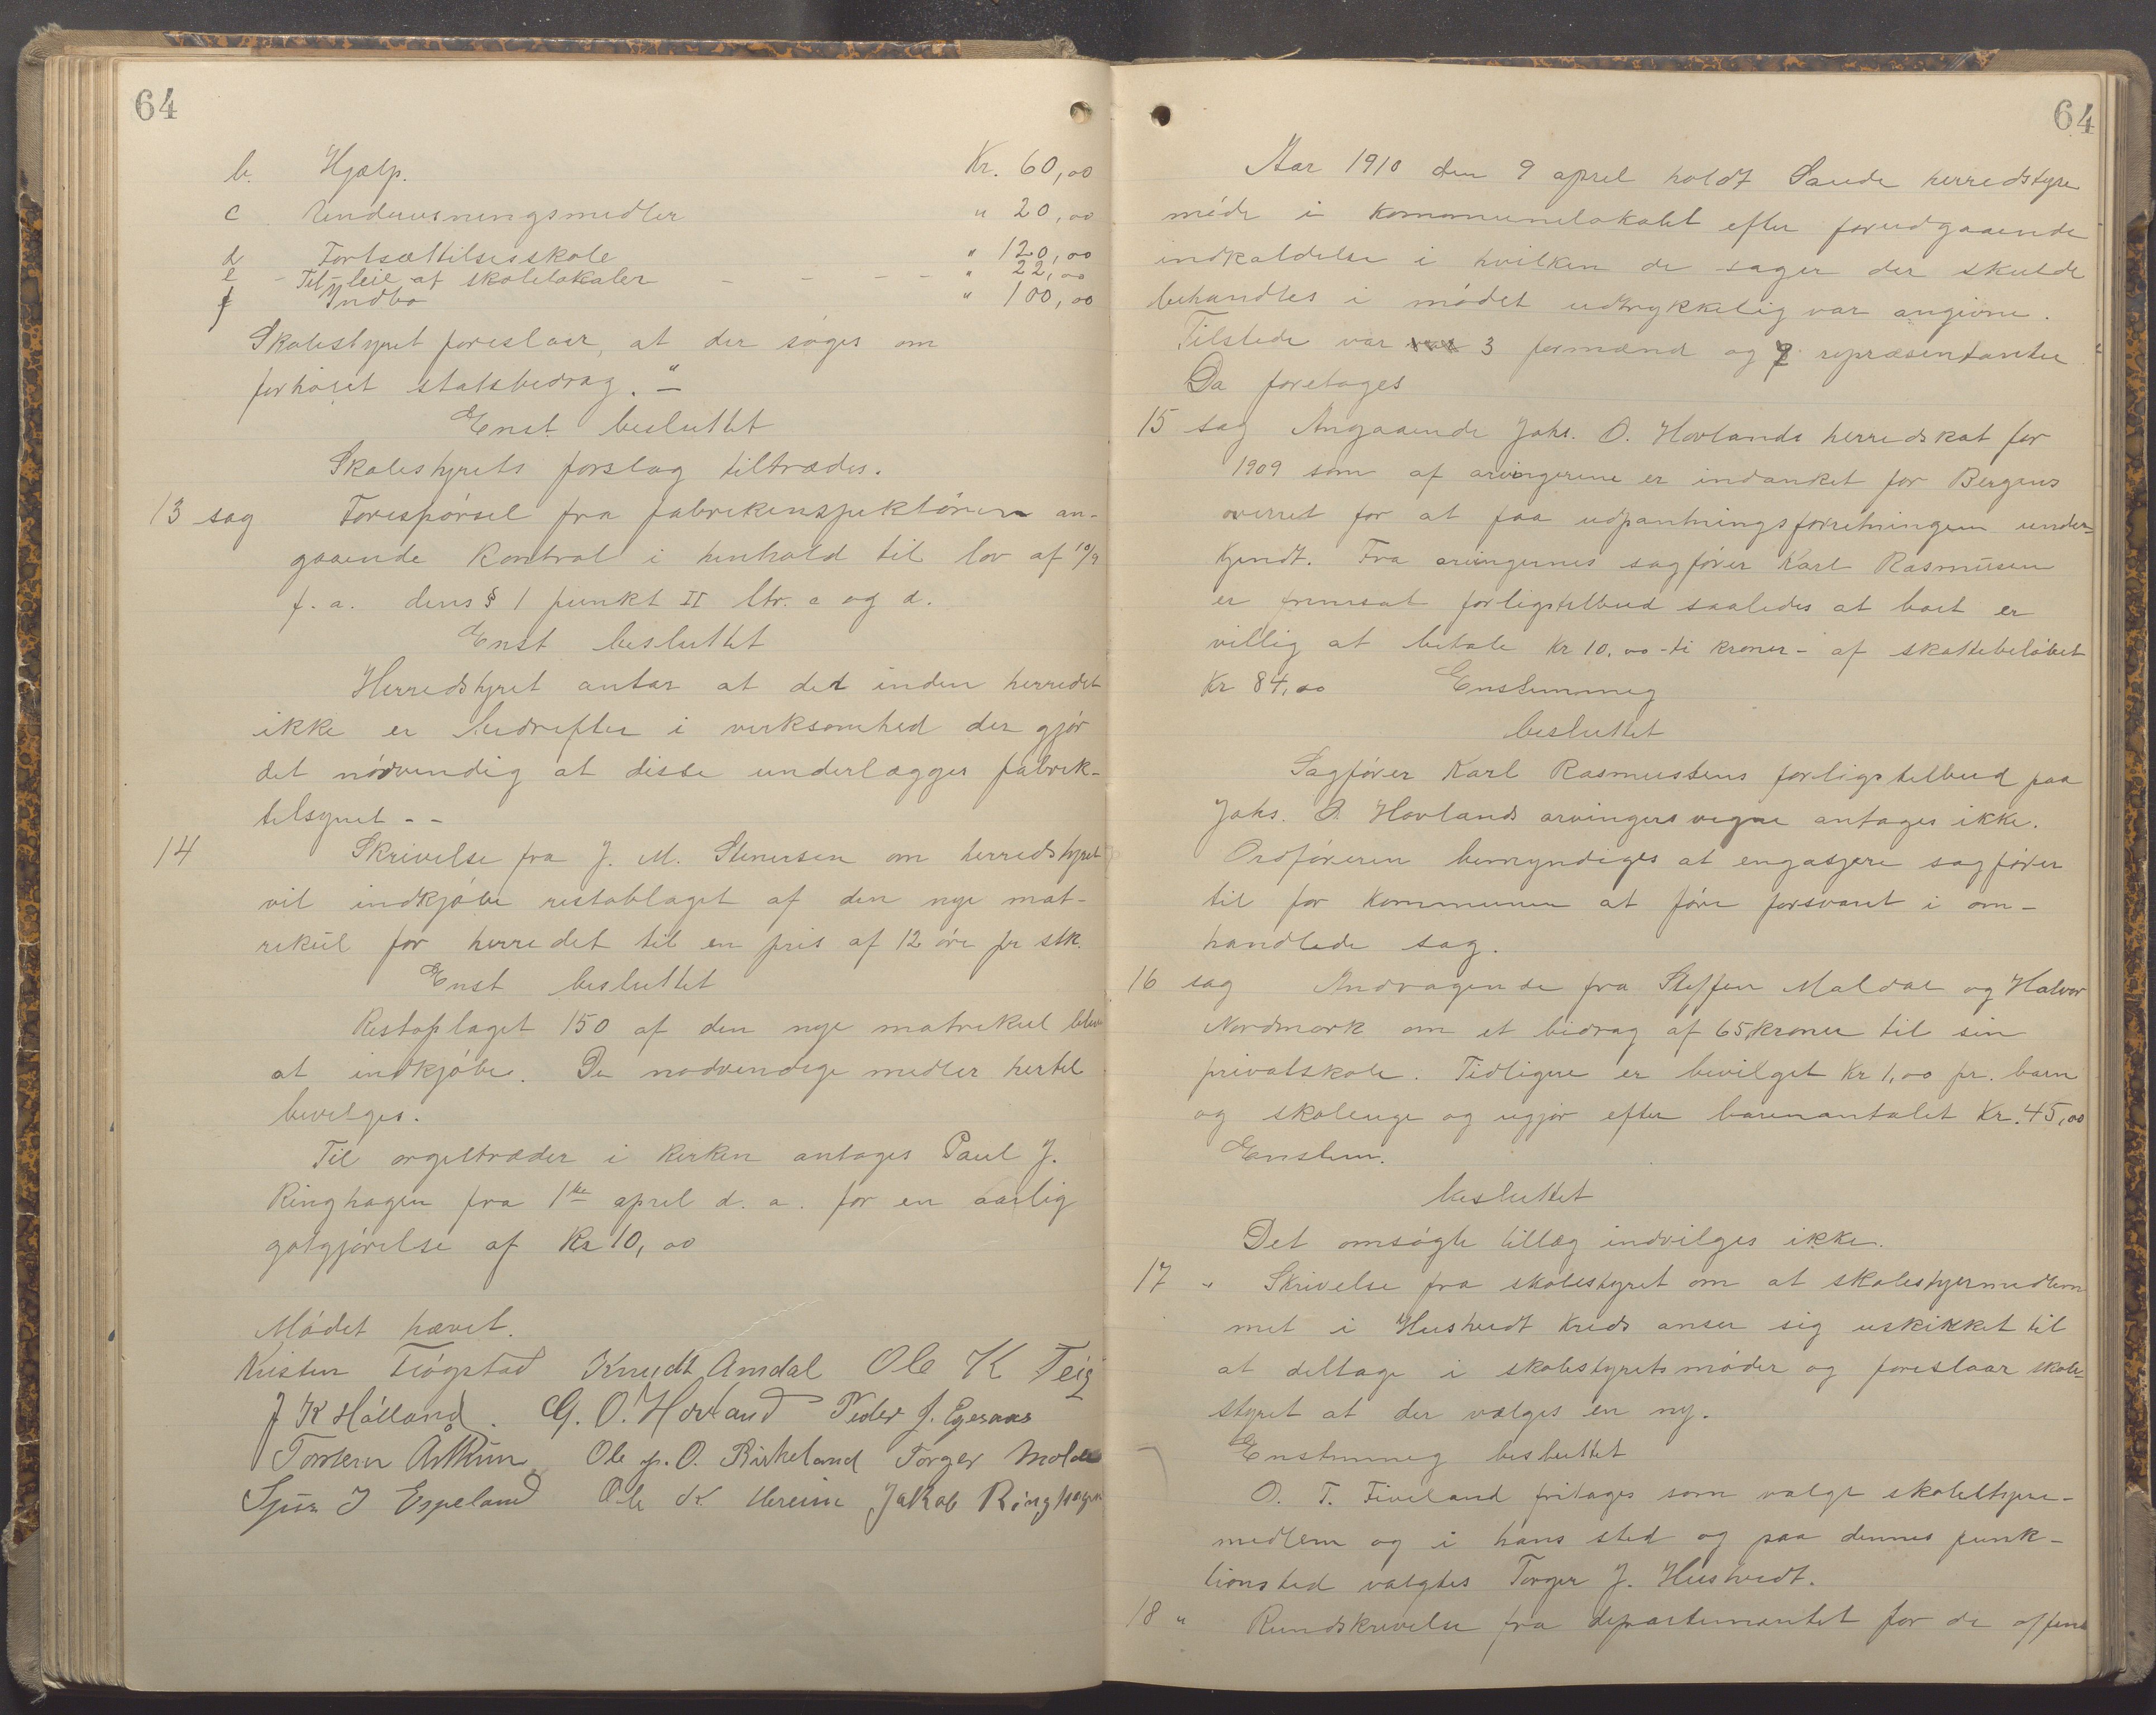 64
b. Hjælp. Kr. 60,00
c Undervisningsmidler " 20,00
d Fortsættelsesskole " 120,00
e - Til leie af skolelokaler - - - - " 22,00
f Indbo " 100,00
Skolestyret foreslaar, at der søges om
forhøiet statsbedrag. "
Enst. besluttet
Skolestyrets forslag tiltrædes.
13 sag Forespørsel fra fabrikinspektøren an-
gaaende kontrol i henhold til lov af 10/9
f. a. dens § 1 punkt II ltr. c og d.
Enst besluttet
Herredstyret antar at det inden herredet
ikke er bedrifter i virksomhed der gjør
det nødvendig at disse underlægges fabrik-
tilsynet - -
14 Skrivelse fra J. M. Stenersen om herredstyret
vil indkjøbe restoblaget af den nye mat-
rikul for herredet til en pris af 12 øre pr stk.
Enst besluttet
Restoplaget 150 af den nye matrikul
at indkjøbe. De nødvendige midler hertil
bevilges.
Til orgeltræder i kirken antages Paul J.
Ringhagen fra 1ste april d. a. for en aarlig
gotgjørelse af Kr 10,00
Mødet hævet.
Kristen Trøgstad Knudt Amdal Ole K Teig
J K Hålland. G. O. Hovland Peder J. Egesaas
Torstein Ole P. O. Birkeland Torger Molde
J Espeland Ole K. Jakob Ringhagen
64
Aar 1910 den 9 april holdt Saude herredstyre
møde i kommunelokalet efter forudgaaende
indkaldelse i hvilken de sager der skulde
behandles i mødet udtrykkelig var angivne.
Tilstede var 3 formænd og 9 repræsentanter
Da foretages
15 sag Angaaende Johs. O. Hovlands herredskat for
1909 som af arvingerne er indanket for Bergens
overret for at faa udpantningsforretningen under-
kjendt. Fra arvingernes sagfører Karl Rasmusen
er fremsat forligstilbud saaledes at boet er
villig at betale Kr 10,00 - ti kroner - af skattebeløbet
Kr 84,00 Enstemmig
besluttet
Sagfører Karl Rasmussens forligstilbud paa
Johs. O. Hovlands arvingers vegne antages ikke.
Ordføreren bemyndiges at engasjere sagfører
til for kommunen at føre forsvaret i om-
handlede sag.
16 sag Andragende fra Steffen Maldal og Halvor
Nordmork om et bidrag af 65 kroner til sin
privatskole. Tidligere er bevilget Kr 1,00 pr. barn
og skoleuge og ugjør efter barnantalet Kr. 45,00
Enstem.
besluttet
Det omsøgte tillæg indvilges ikke.
17 " Skrivelse fra skolestyret om at skolestyermedlem
met i Hustvedt kreds anser sig uskikket til
at deltage i skolestyrets møder og foreslaar skole-
styret at der vælges en ny.
Enstemmig besluttet
O. T. Fiveland fritages som valgt skolestyre-
medlem og i hans sted og paa dennes funk-
tionstid valgtes Torger J. Hustvedt.
18 " Rundskrivelse fra departementet for de offent